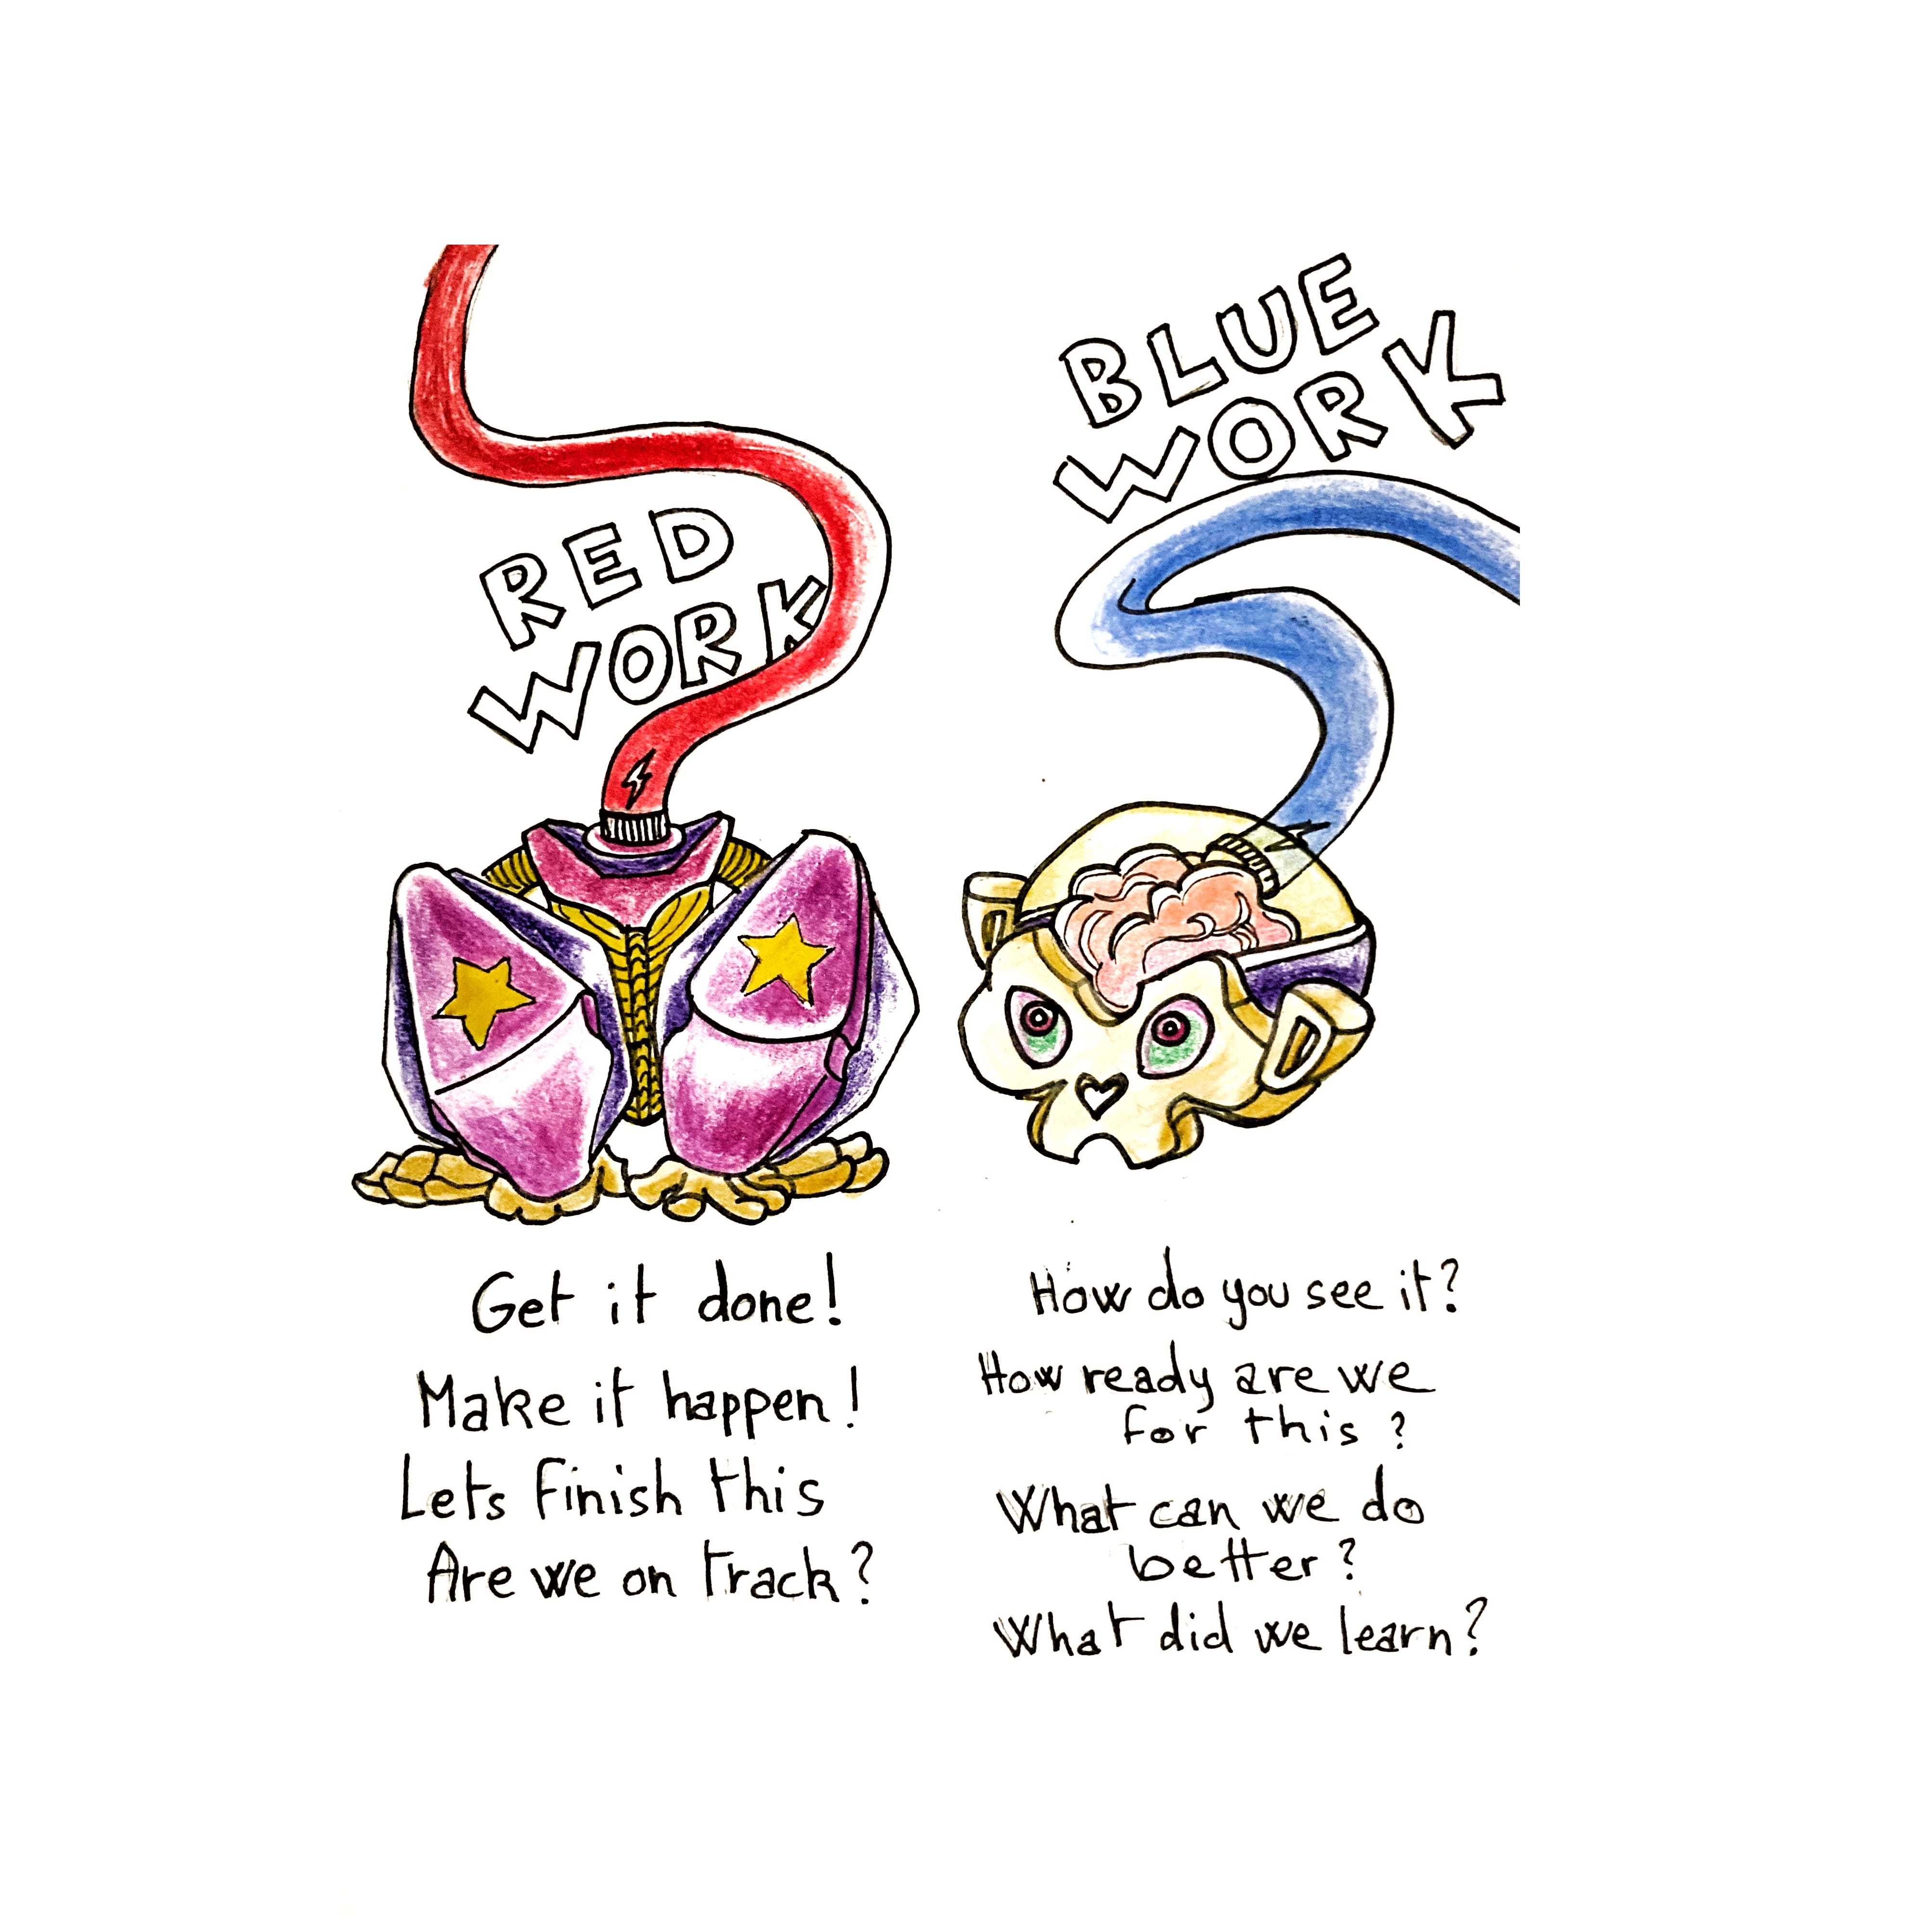 RED
WORK
Get it done!
Make it happen!
Lets finish this
Are we on track?
BLUE
WORK
How do you see it?
How ready are we
for this?
What can we do
better?
What did we learn?